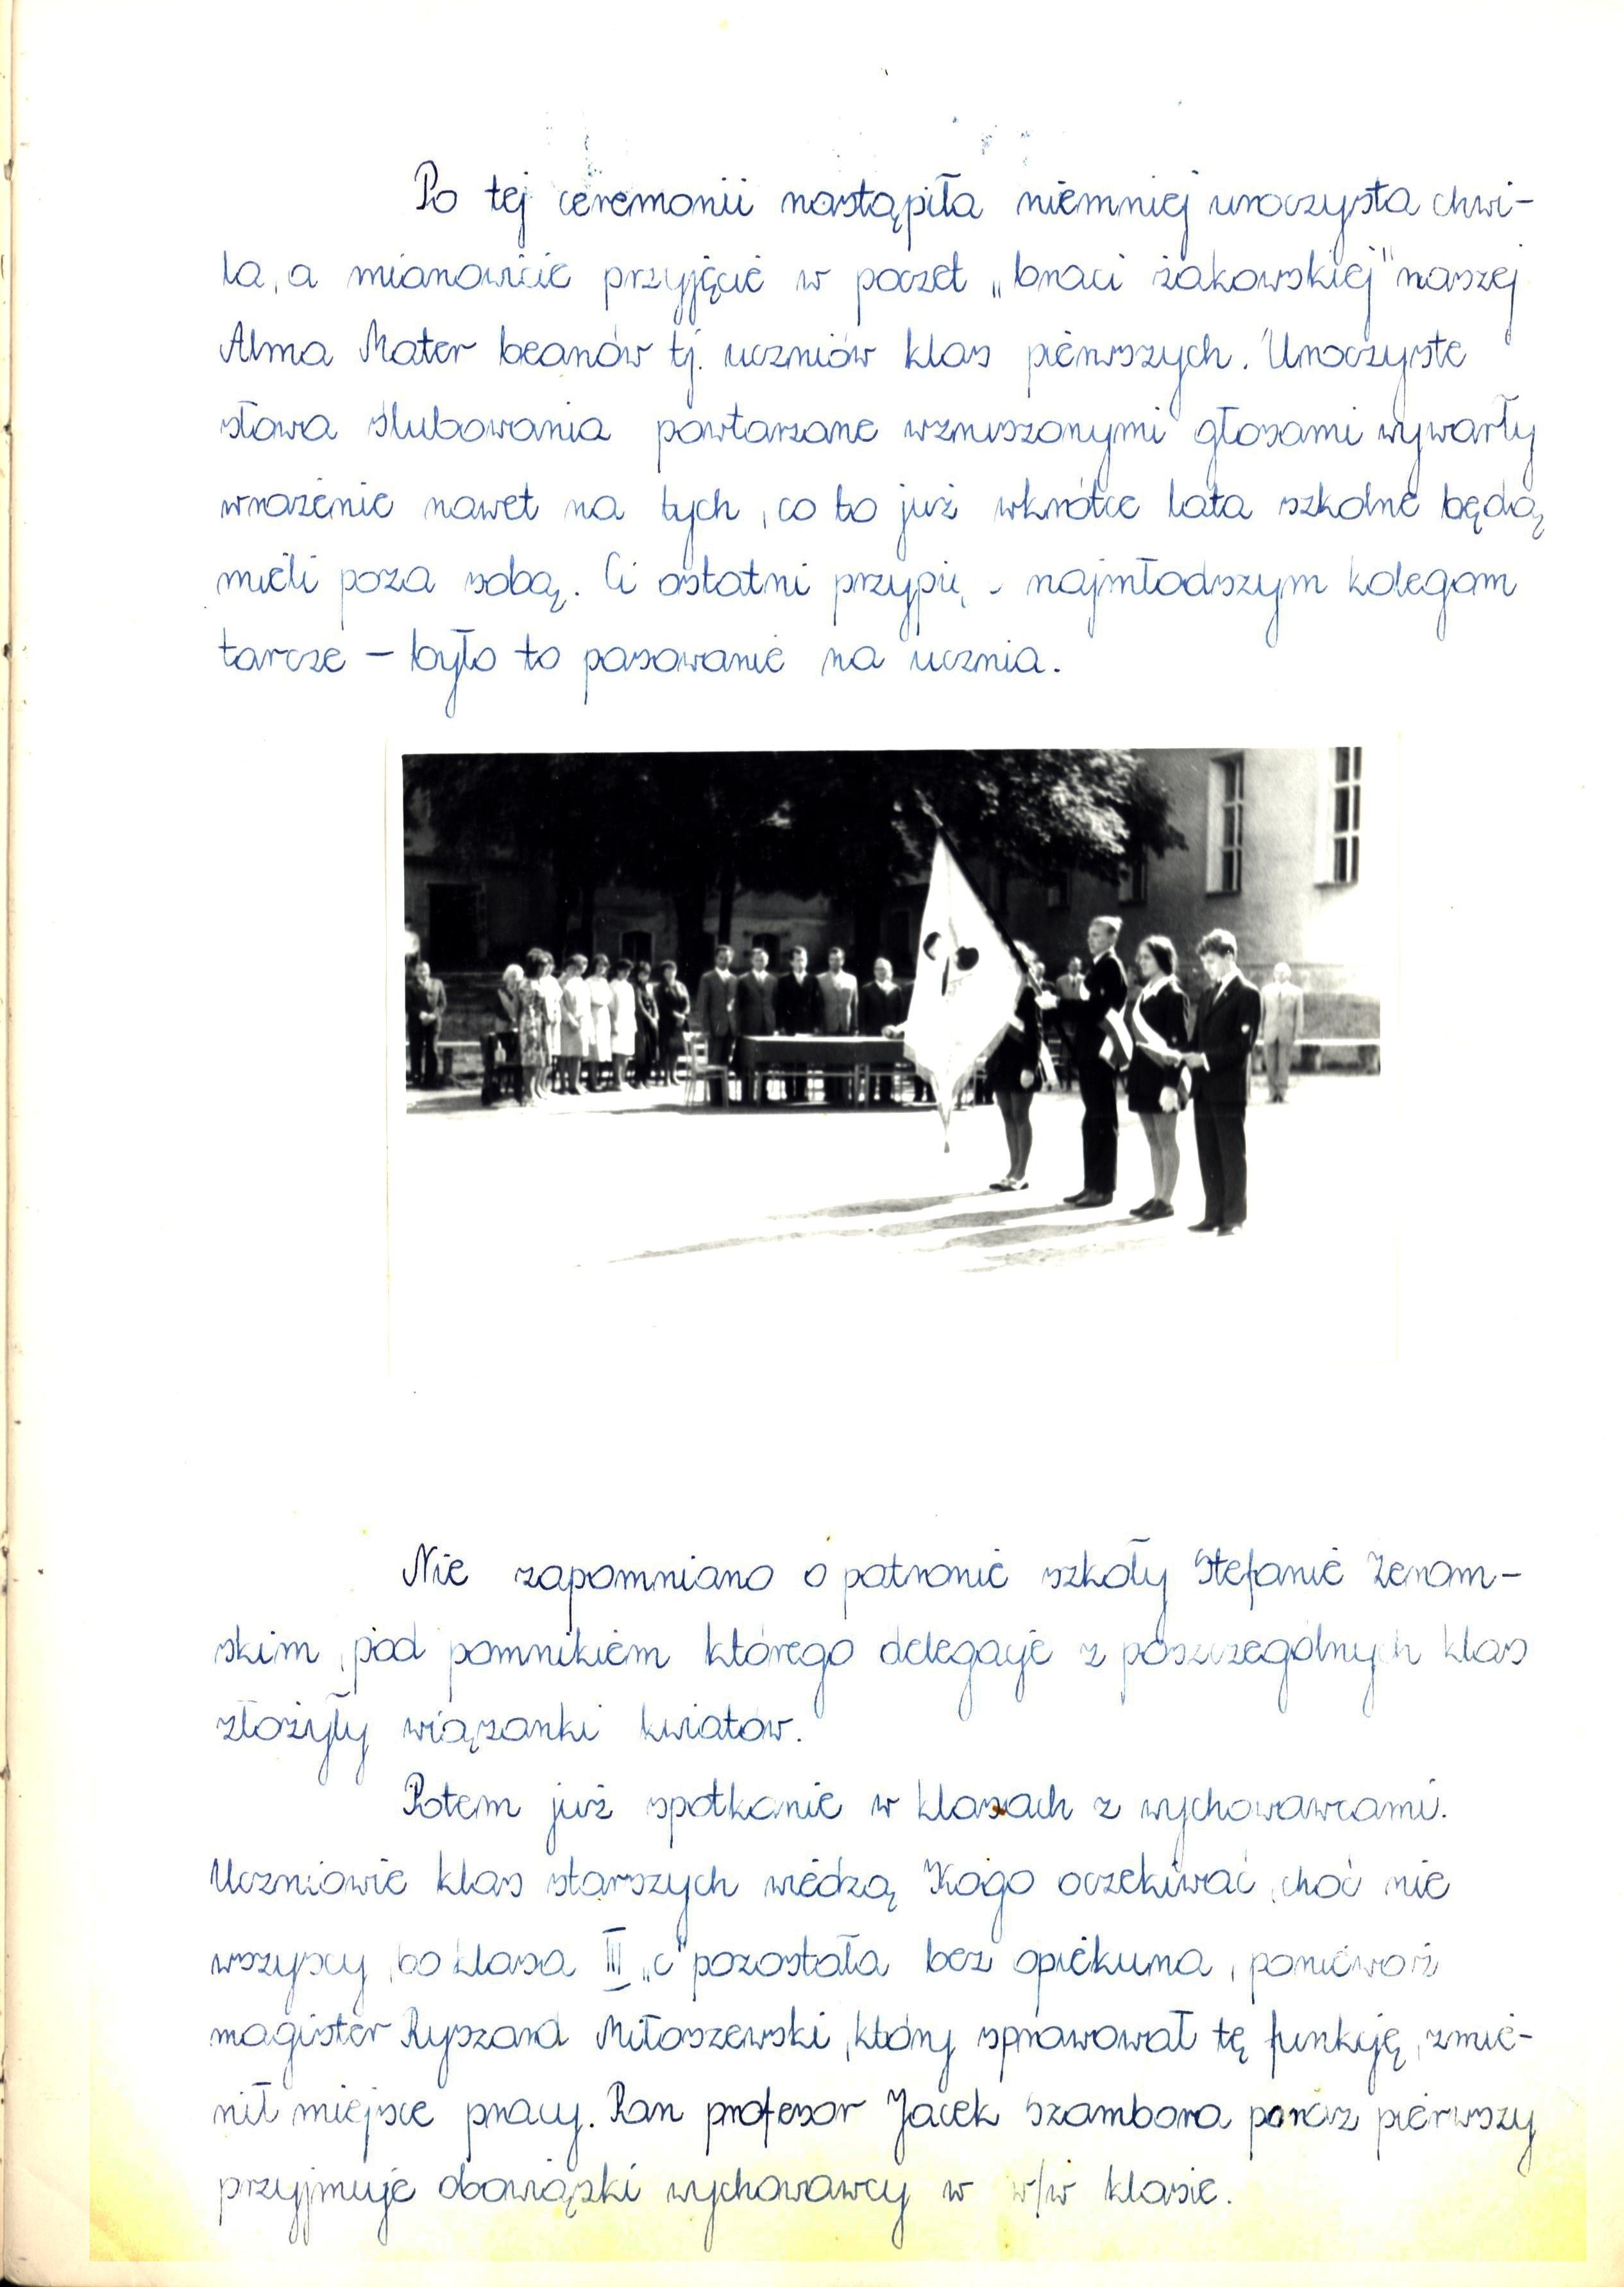 Po tej ceremonii nastąpiła niemniej uroczysta chwi-
la, a mianowicie przyjęcie w poczet „braci żakowskiej" naszej
Alma Mater beanów tj. uczniów klas pierwszych. Uroczyste
słowa ślubowania powtarzane wzruszonymi głosami wywarły
wrażenie nawet na tych, co to już wkrótce lata szkolne będą
mieli poza sobą. Ci ostatni najmłodszym kolegom
tarcze – było to pasowanie na ucznia.
Nie zapomniano o patronie szkoły Stefanie Żerom-
skim, pod pomnikiem którego delegacje z poszczególnych klas
złożyły wiązanki kwiatów.
Potem już spotkanie w klasach z wychowawcami.
Uczniowie klas starszych wiedzą Kogo oczekiwać, choć nie
wszyscy, bo klasa III „c" pozostała bez opiekuna, ponieważ
magister Ryszard Miłoszewski, który sprawował tę funkcję, zmie-
nił miejsce pracy. Pan profesor Jacek Szambora poraz pierwszy
przyjmuje obowiązki wychowawcy w w/w klasie.